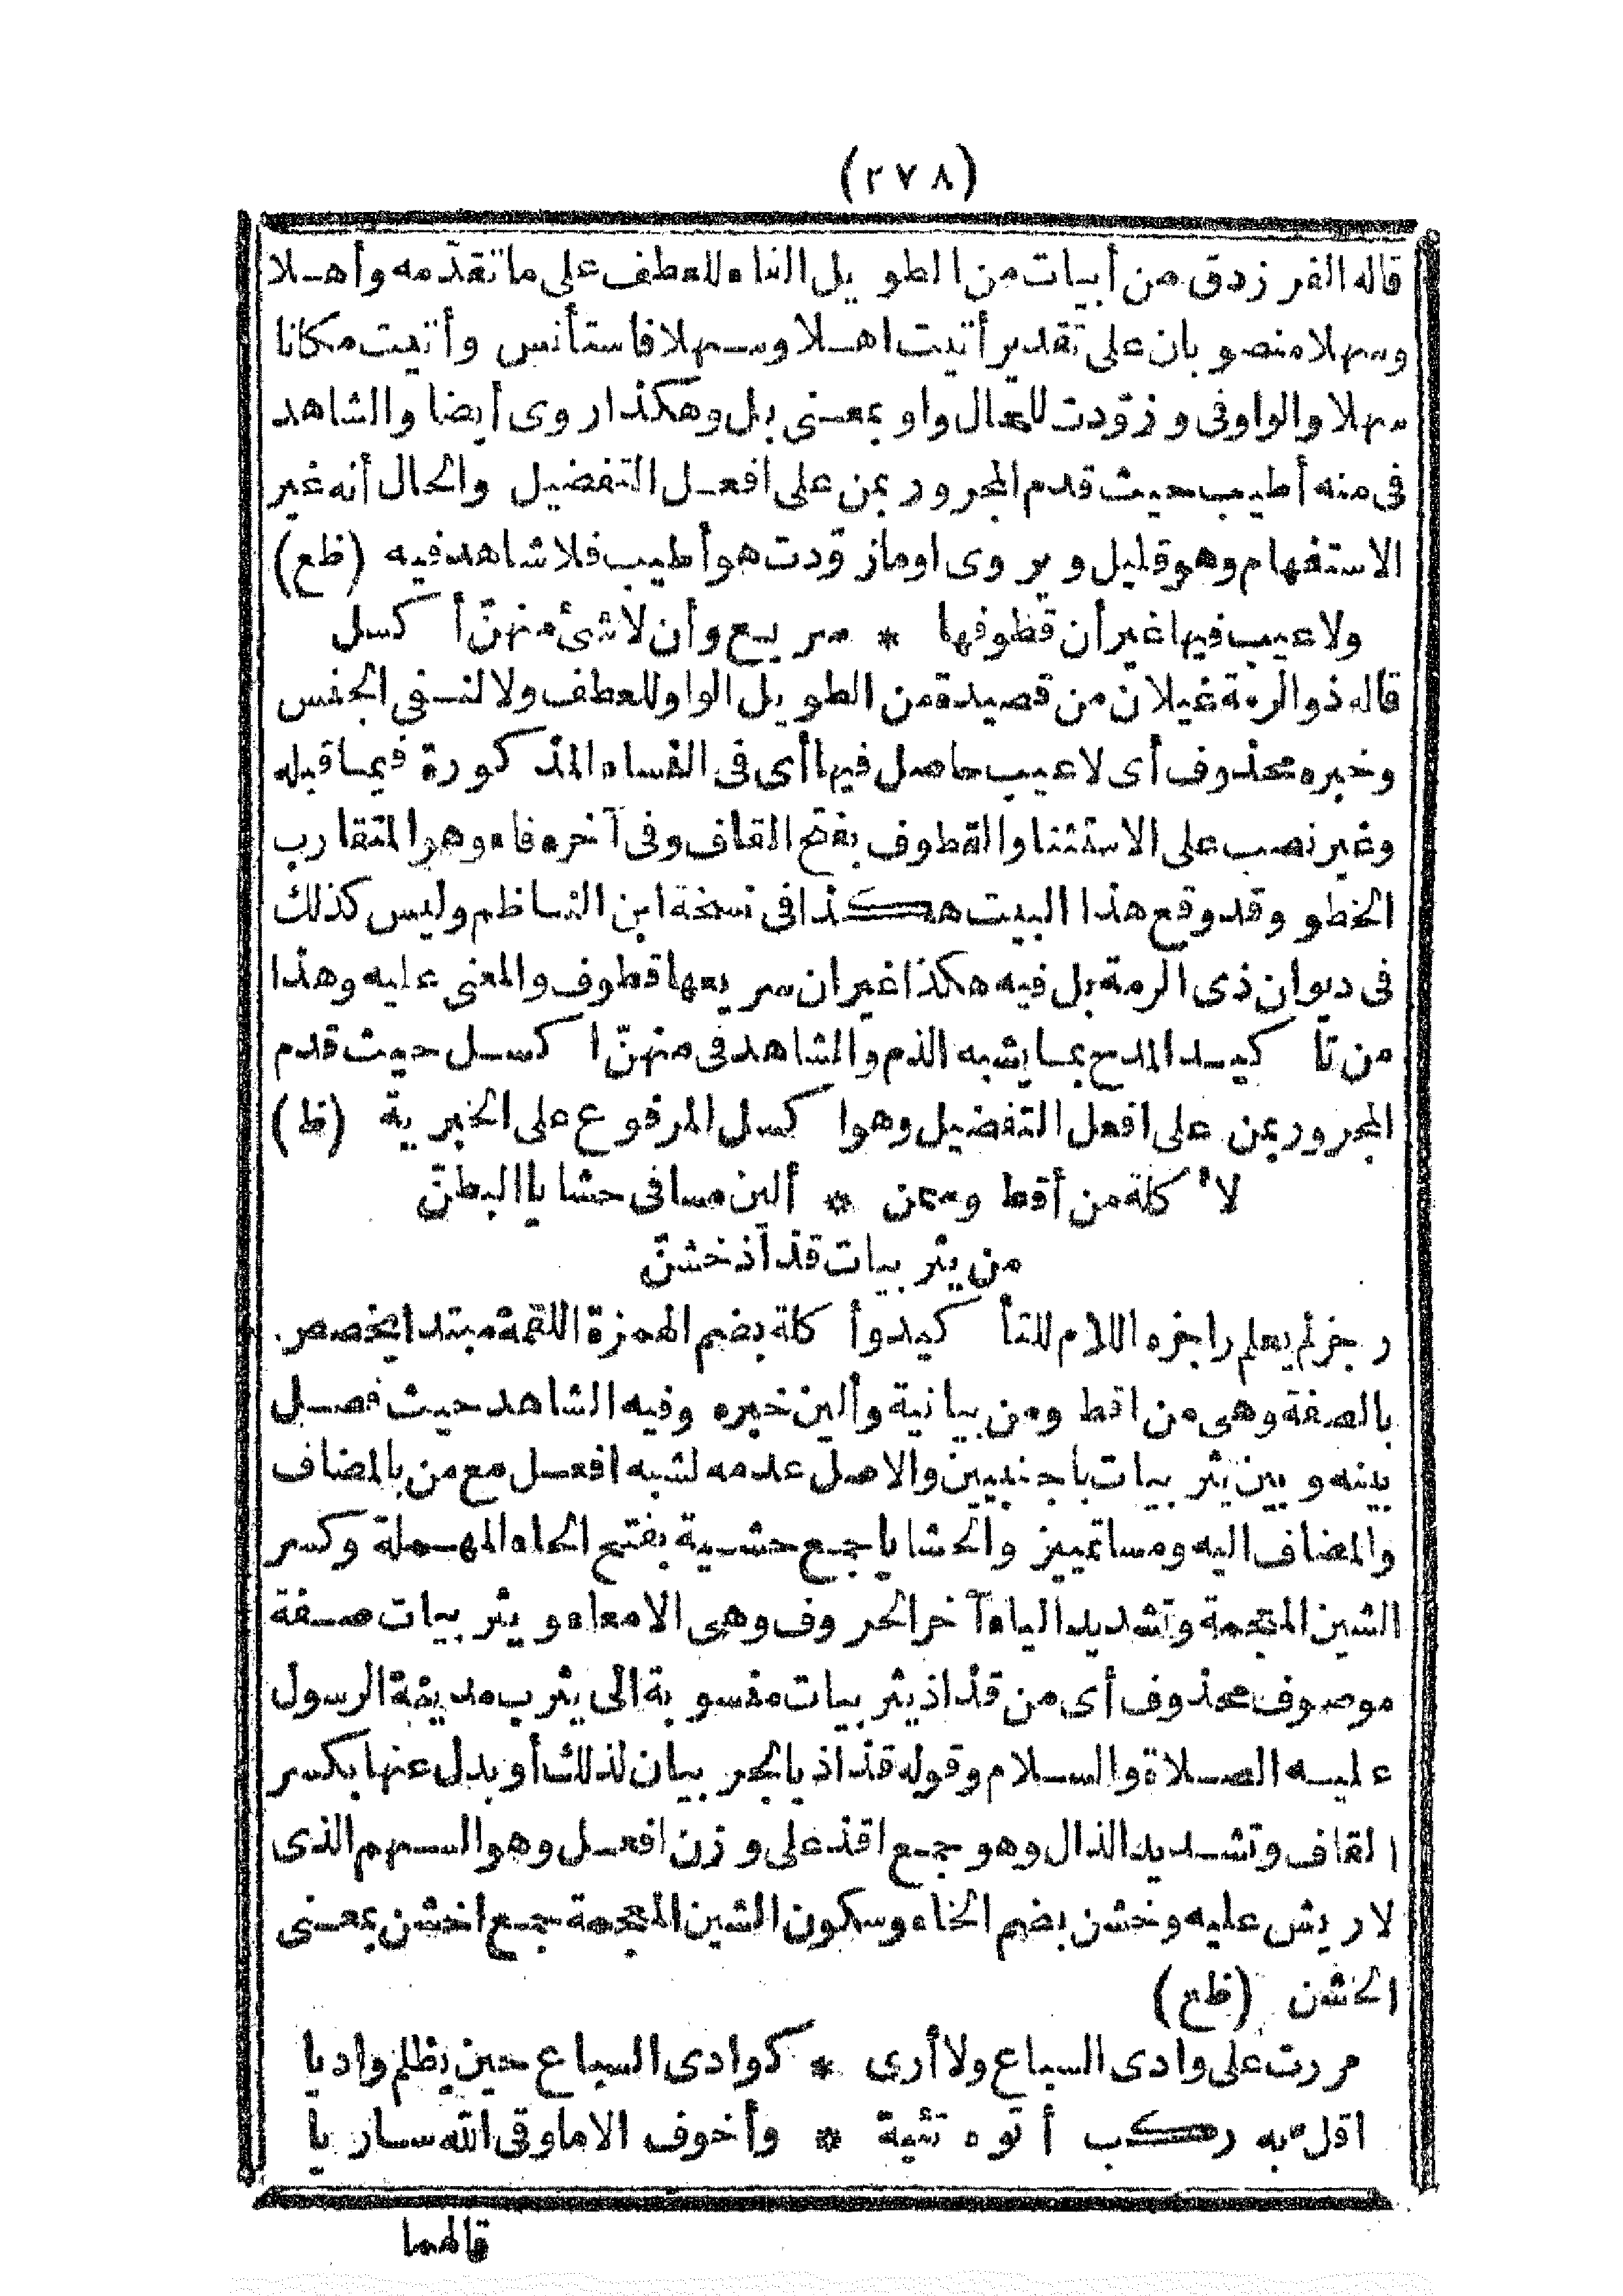 (٢٧٨)
قاله الفرزدق من أبيات من الطويل الفاء للعطف على ما تقدّمه وأهلا
وسهلا منصوبان على تقدير أتيت اهلا وسهلا فاستأنس وأتيت مكانا
سهلا والواو فى وزوّدت للحال واو بمعنى بل وهكذا روى أيضا والشاهد
فى منه أطيب حيث قدم المجرور بمن على افعل التفضيل والحال أنه غير
الاستفهام وهو قليل ويروى اوما زوّدت هو أطيب فلا شاهد فيه (ظع)
ولا عيب فيها غير أن قطوفها * سريع وأن لا شئ منهنّ أكسل
قاله ذو الرمة غيلان من قصيدة من الطويل الواو للعطف ولا لنفى الجنس
وخبره محذوف أى لا عيب حاصل فيها أى فى النساء المذكورة فيما قبله
وغير نصب على الاستثنا والقطوف بفتح القاف وفى آخره فاء وهو المتقارب
الخطو وقد وقع هذا البيت هكذا فى نسخة ابن الناظم وليس كذلك
فى ديوان ذى الرمة بل فيه هكذا غير ان سريعها قطوف والمعنى عليه وهذا
من تأكيد المدح بما يشبه الذم والشاهد فى منهنّ اكسل حيث قدم
المجرور بمن على افعل التفضيل وهو اكسل المرفوع على الخبرية (ظ)
لأكلة من أقط وسمن * ألين مسا فى حشايا البطنّ
من يثربيات قذاذ خشنّ
رجز لم يعلم راجزه اللام للتأكيد وأكلة بضم الهمزة اللقمة مبتدا يخصص
بالصفة وهى من اقط ومن بيانية وألين خبره وفيه الشاهد حيث فصل
بينه وبين يثربيات باجنبيين والاصل عدمه لشبه افعل مع من بالمضاف
والمضاف اليه ومسا تمييز والحشايا جمع حشية بفتح الحاء المهملة وكسر
الشين المعجمة وتشديد الياء آخر الحروف وهى الامعاء ويثربيات صفة
موصوف محذوف أى من قذاذ يثربيات منسوبة الى يثرب مدينة الرسول
عليه الصلاة والسلام وقوله قذاذ بالجر بيان لذلك أو بدل عنها بكسر
القاف وتشديد الذال وهو جمع اقذ على وزن افعل وهو السهم الذى
لا ريش عليه وخشن بضم الخاء وسكون الشين المعجمة جمع اخشن بمعنى
الخشن (ظع)
مررت على وادى السباع ولا أرى * كوادى السباع حين يظلم واديا
اقل به ركب أتوه تئية * وأخوف الا ما وقى الله ساريا
قالهما